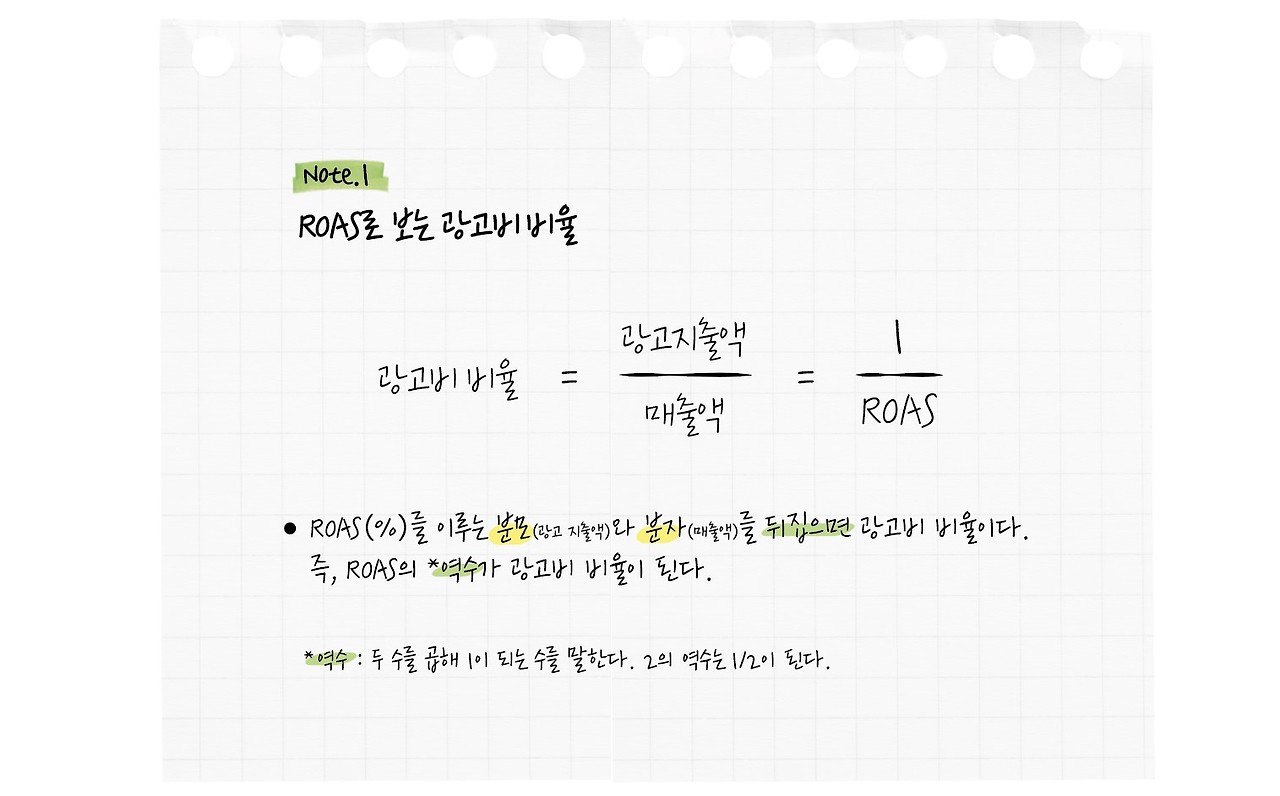 Note.1
ROAS로 보는 광고비 비율
광고비 비율 = 광고지출액 / 매출액 = 1 / ROAS
● ROAS(%)를 이루는 분모(광고 지출액)와 분자(매출액)를 뒤집으면 광고비 비율이다.
즉, ROAS의 *역수가 광고비 비율이 된다.
*역수 : 두 수를 곱해 1이 되는 수를 말한다. 2의 역수는 1/2이 된다.